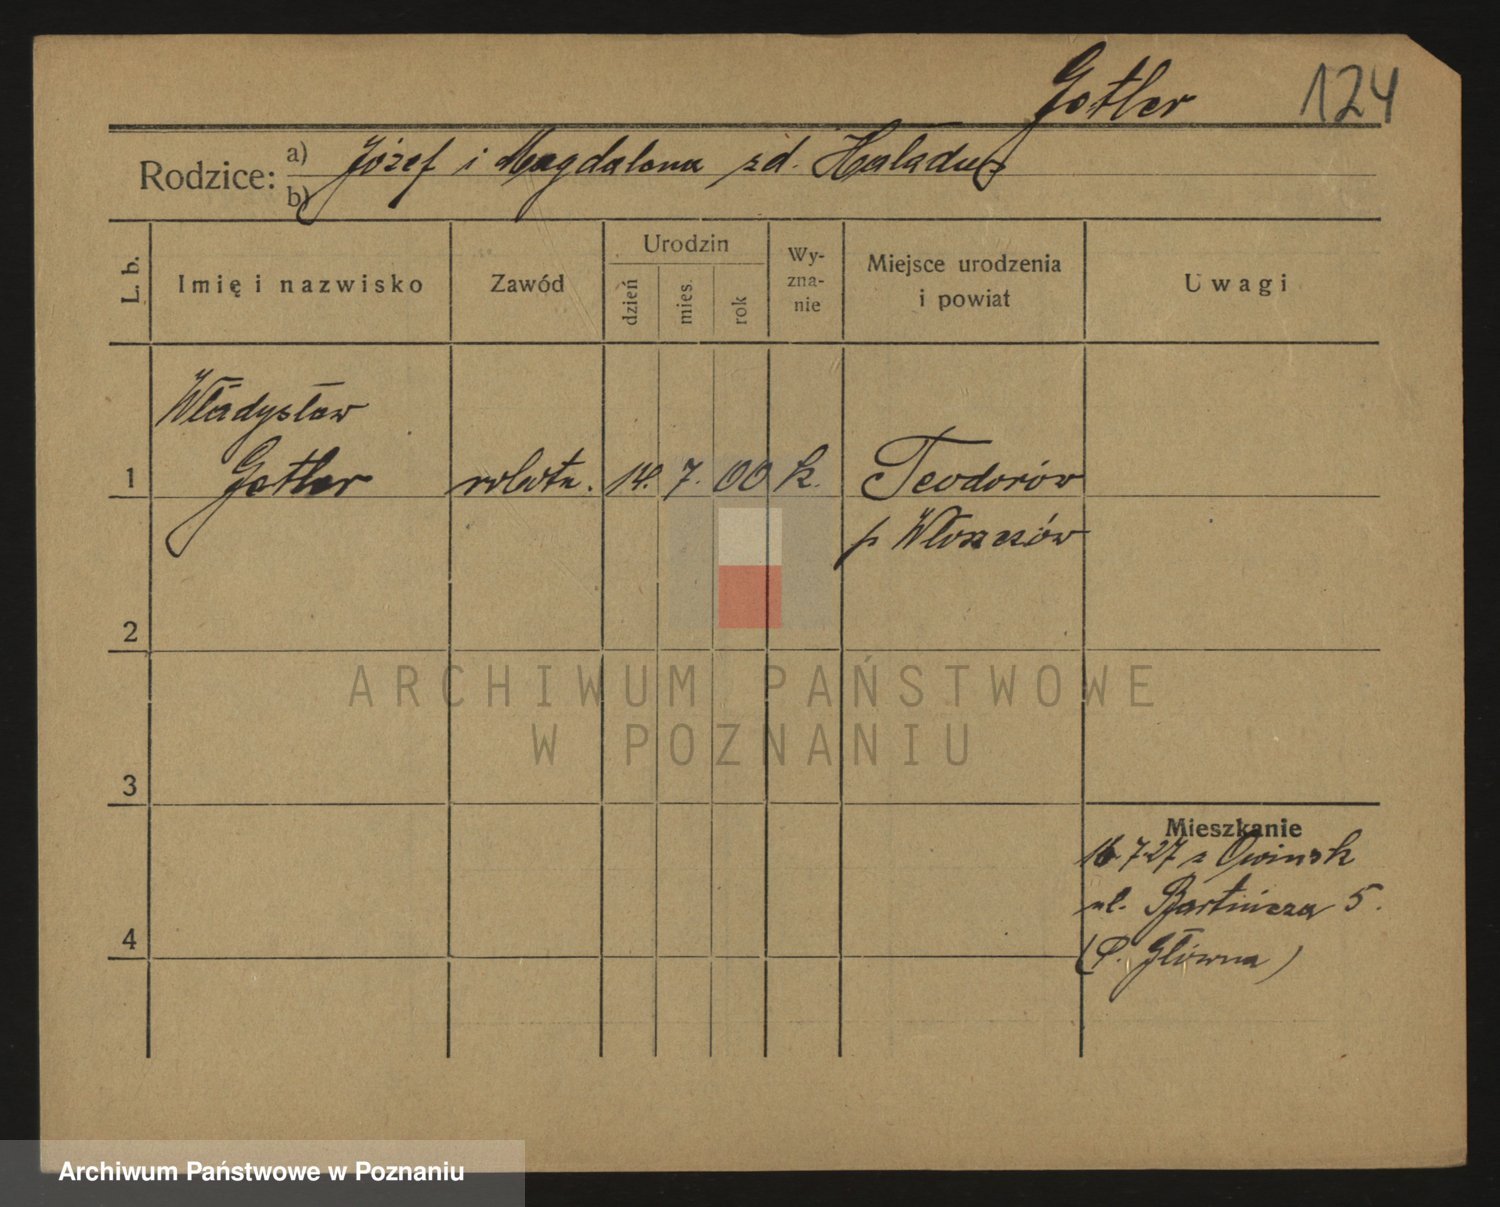 Getler 124
Rodzice: a) Józef i Magdalena zd. Haladus
b)
L. b. Imię i nazwisko Zawód Urodzin dzień mies. rok Wyzna-nie Miejsce urodzenia i powiat Uwagi
Władysław
1 Getler robotn. 14. 7. 00 k. Teodorów
p Włoszczów
2
ARCHIWUM PAŃSTWOWE
W POZNANIU
3
Mieszkanie
16.7.27 z Owińsk
ul. Bartnicza 5.
4 (P. Główna)
Archiwum Państwowe w Poznaniu